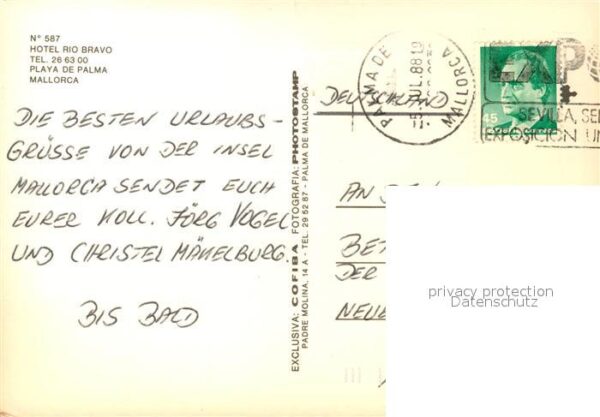 N° 587
HOTEL RIO BRAVO
TEL. 26 63 00
PLAYA DE PALMA
MALLORCA
DIE BESTEN URLAUBS-
GRÜSSE VON DER INSEL
MALLORCA SENDET EUCH
EURER KOLL. JÖRG VOGEL
UND CHRISTEL MÄKELBURG.
BIS BALD
EXCLUSIVA: COFIBA / FOTOGRAFIA: PHOTOSTAMP
PADRE MOLINA, 14 A - TEL. 29 52 87 - PALMA DE MALLORCA
DEUTSCHLAND
PALMA DE MALLORCA
-5 JUL. 88
45
EXPO
SEVILLA, SE
EXPOSICION UN
AN
BET
DER
NEUE
privacy protection
Datenschutz